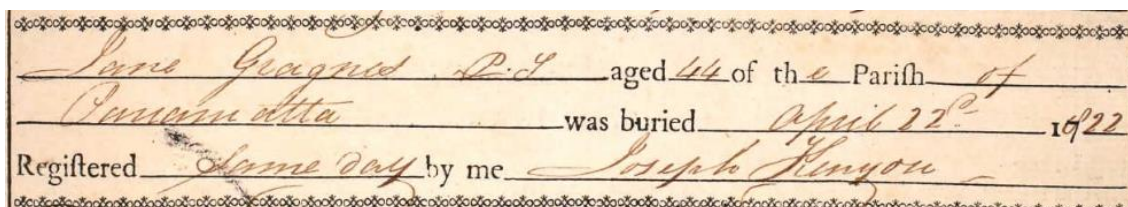 Jane Gragnes P.S aged 44 of the Pariſh of
Parramatta was buried April 22d. 1822
Regiſtered Same day by me Joseph Kenyon